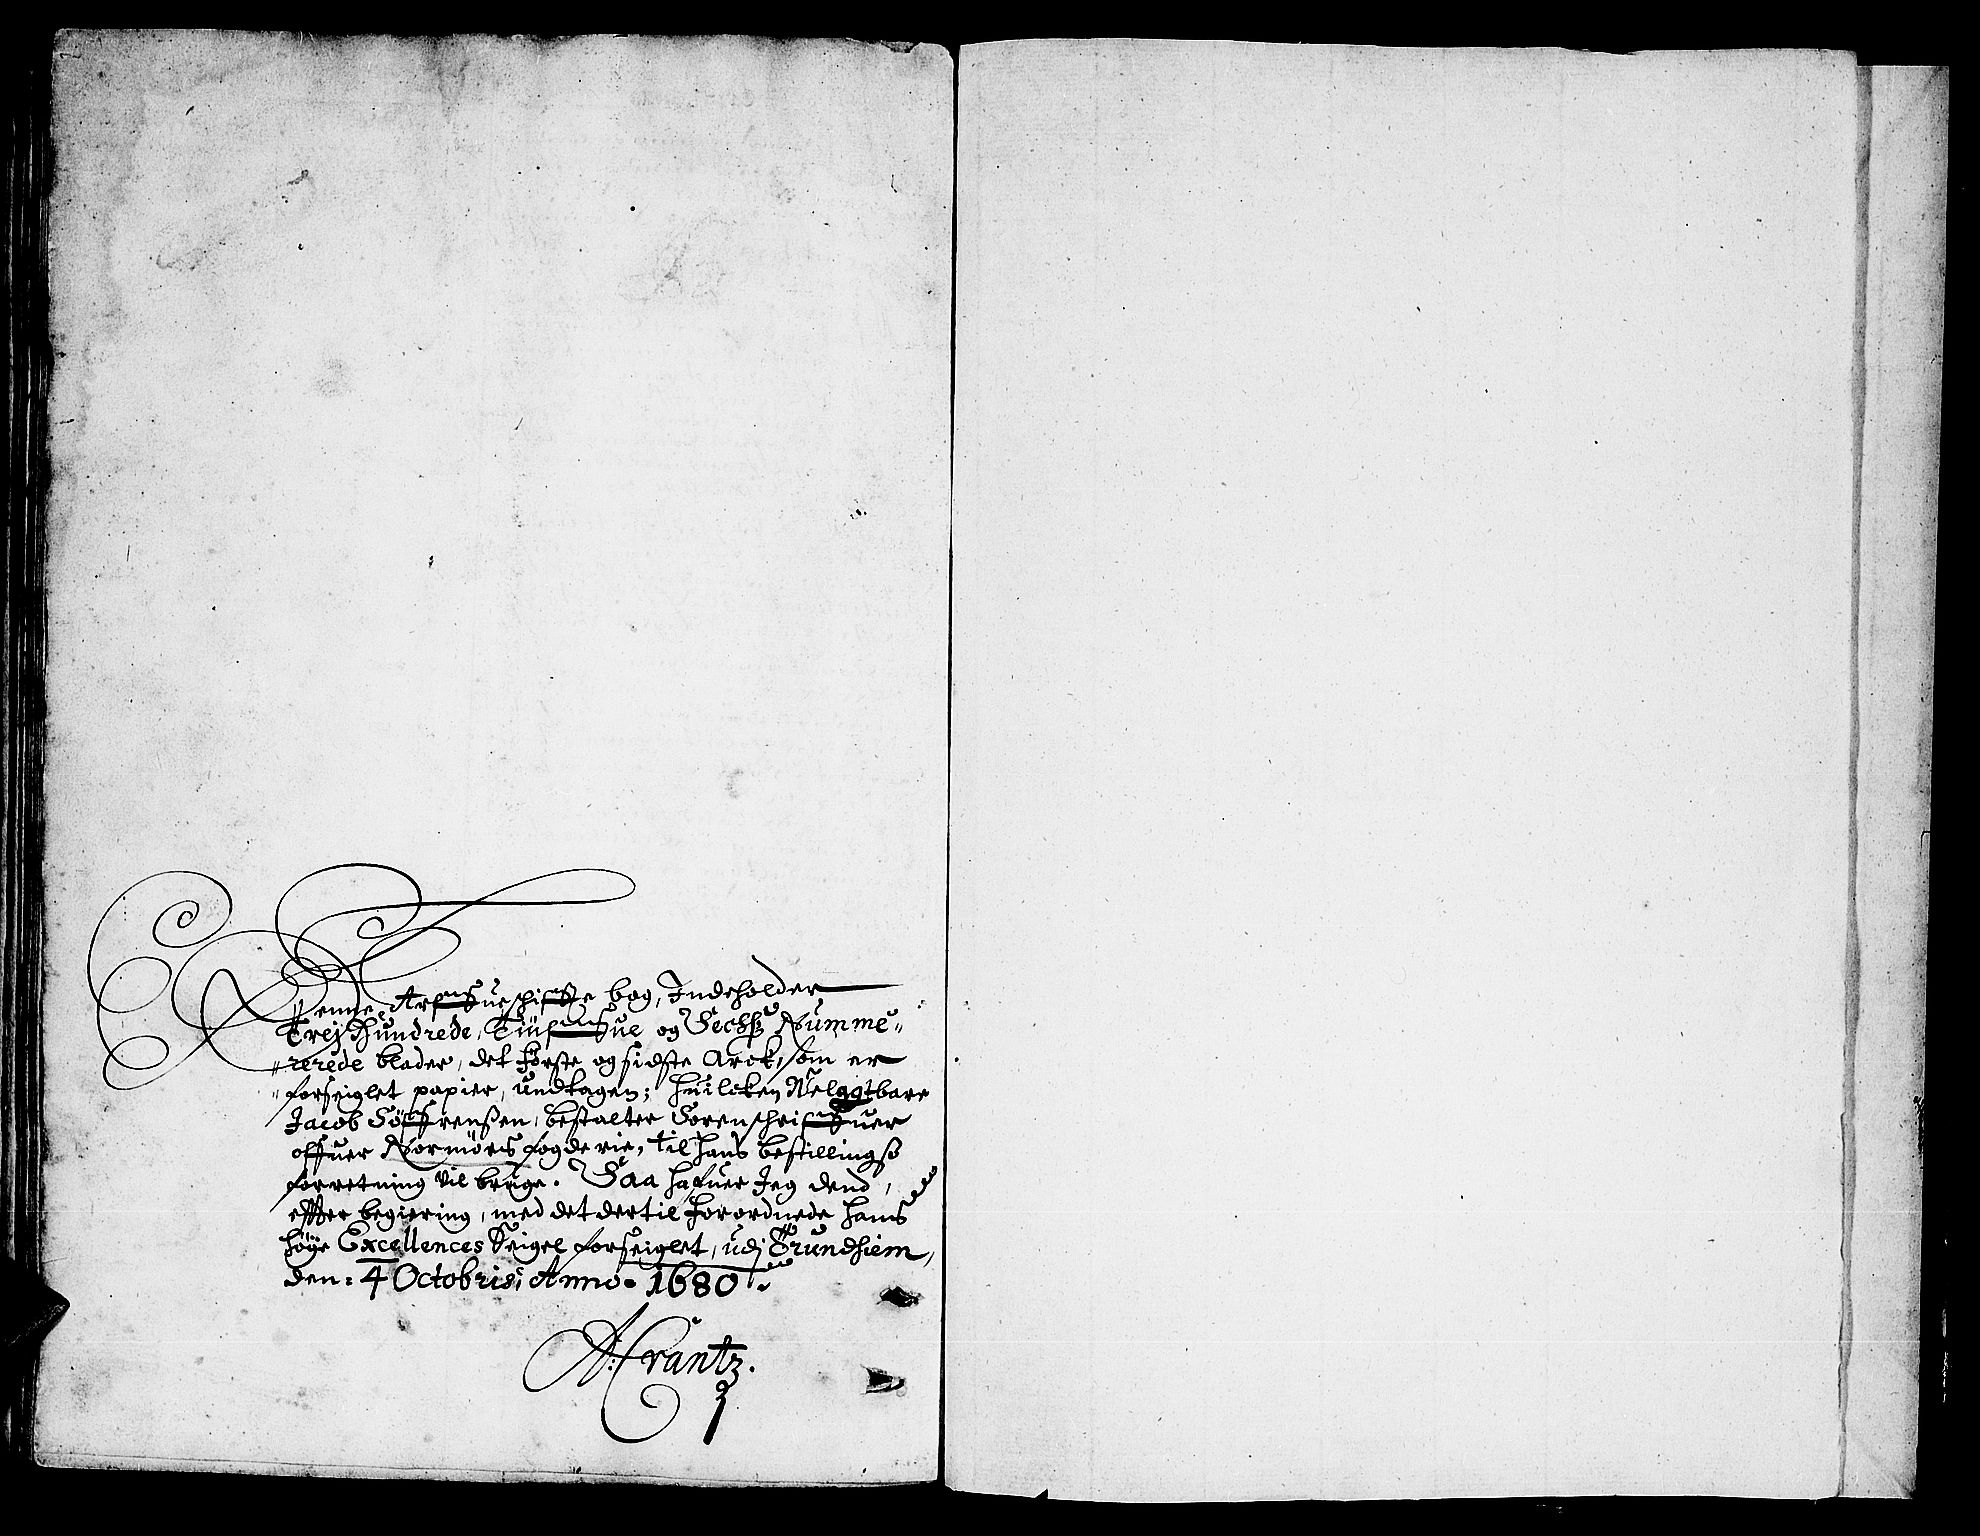 Denne Arfueschifte bog, Indeholder
Trej Hundrede, Tiufue og Sechs Numme„
„rerede blader, det første og sidste Arck, som er
„forseiglet papier, undtagen; huilcken Welagtbare
Jacob Søfrenßen, bestalter Sorenschrifuer
offuer Normörs fogderie, til hans bestillings
forretning vil bruge. Saa hafuer Jeg dend,
effter begiering, med det dertil forordnede hans
høye Excellences Seigel forseiglet, udj Trundhiem,
den: 4 Octobris: Anno. 1680.
A: Crantz.